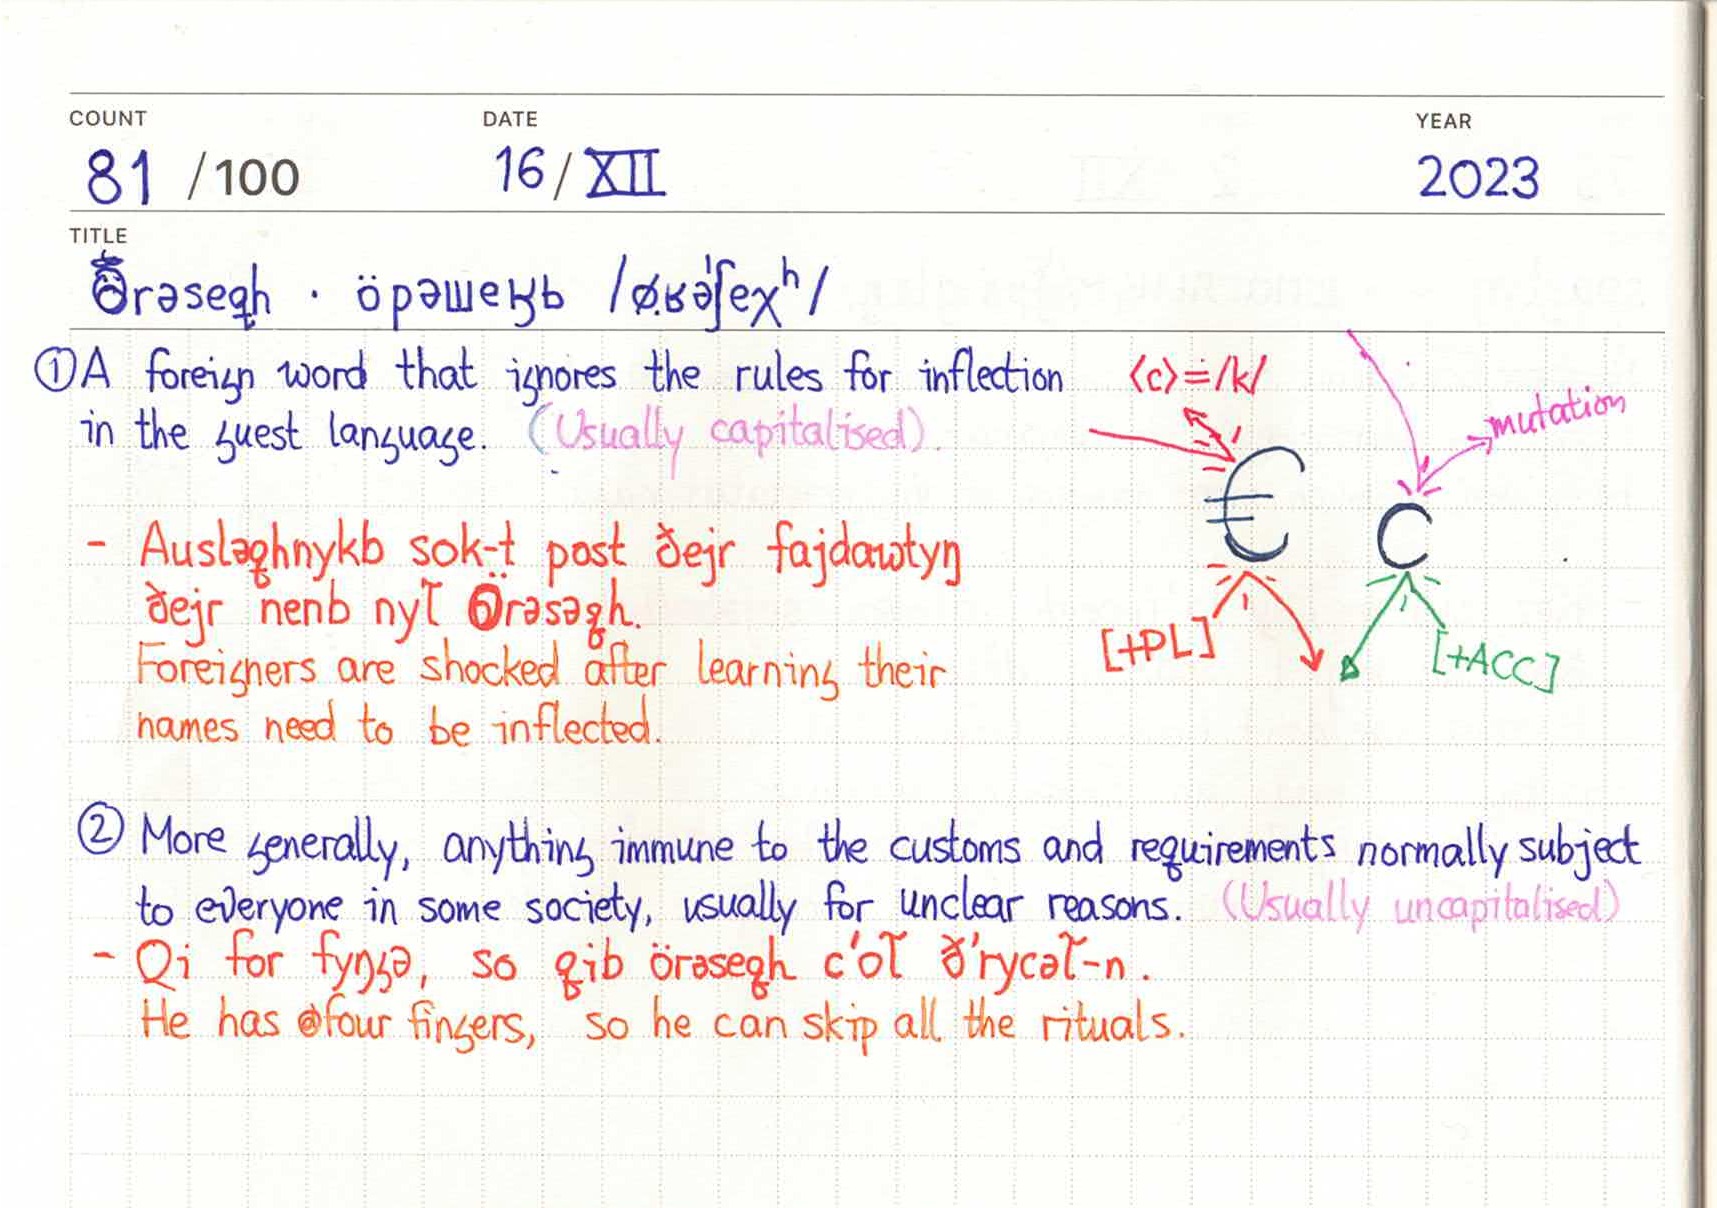 COUNT
DATE
YEAR
81 /100
16/XII
2023
TITLE
Örəseqh · öpəшеҕь /øʁəˈʃeχʰ/
① A foreign word that ignores the rules for inflection
in the guest language. (Usually capitalised).
<c> = /k/
mutation
€
C
- Ausləqhnykb sok-t post ðejr fajdawtyŋ
ðejr nenb nyl̃ Örəsəqh.
[+PL]
[+ACC]
Foreigners are shocked after learning their
names need to be inflected.
② More generally, anything immune to the customs and requirements normally subject
to everyone in some society, usually for unclear reasons. (Usually uncapitalised)
- Qi for fyŋgə, so qib örəseqh c'ol̃ ð'rycəl̃-n.
He has four fingers, so he can skip all the rituals.